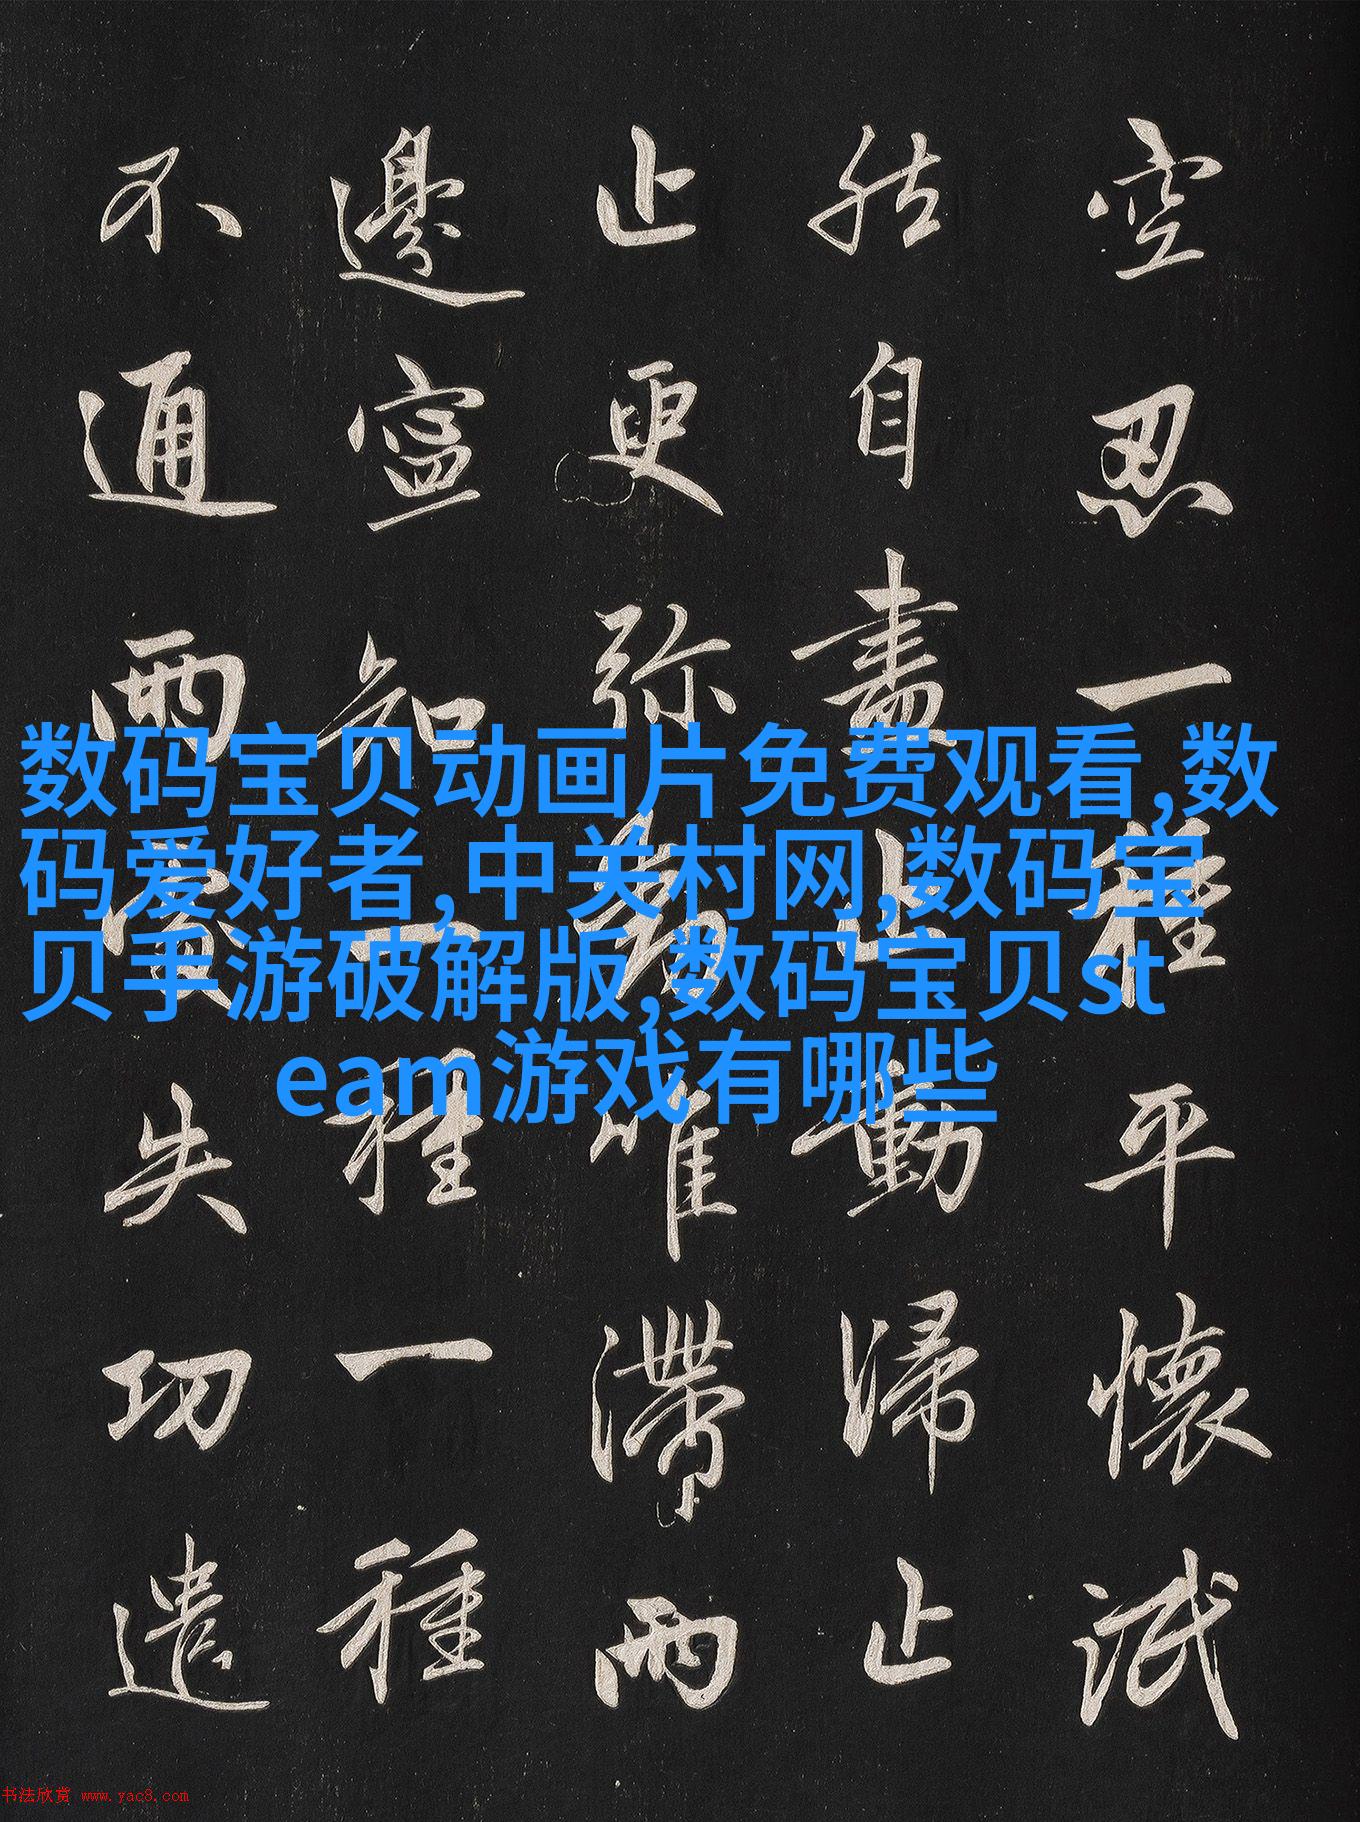 空忍一種平懷泯
然自盡止動歸止
止更弥動唯滯兩
邊寍知一種一種
不通兩處失功遣
数码宝贝动画片免费观看,数
码爱好者,中关村网,数码宝
贝手游破解版,数码宝贝st
eam游戏有哪些
书法欣赏 www.yac8.com